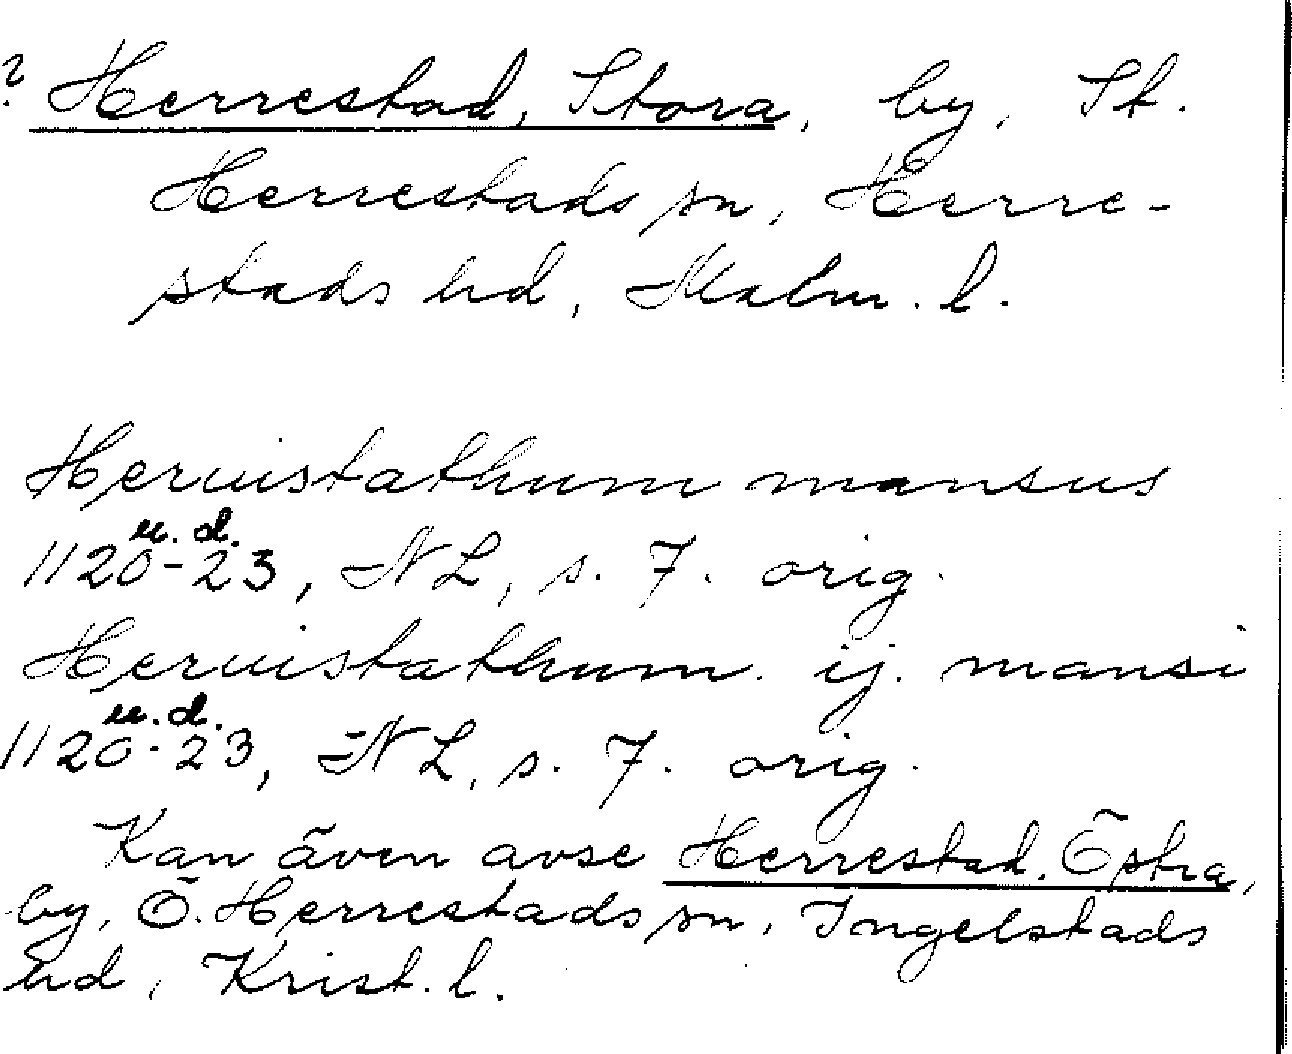 ? Herrestad, Stora, by, St.
Herrestads sn, Herre-
stads hd, Malm. l.
Heruistathum mansus
u. d.
1120-23, NL, s. 7. orig.
Heruistathum. ij. mansi
u. d.
1120-23, NL, s. 7. orig.
Kan även avse Herrestad, Östra,
by, Ö. Herrestads sn, Ingelstads
hd, Krist. l.